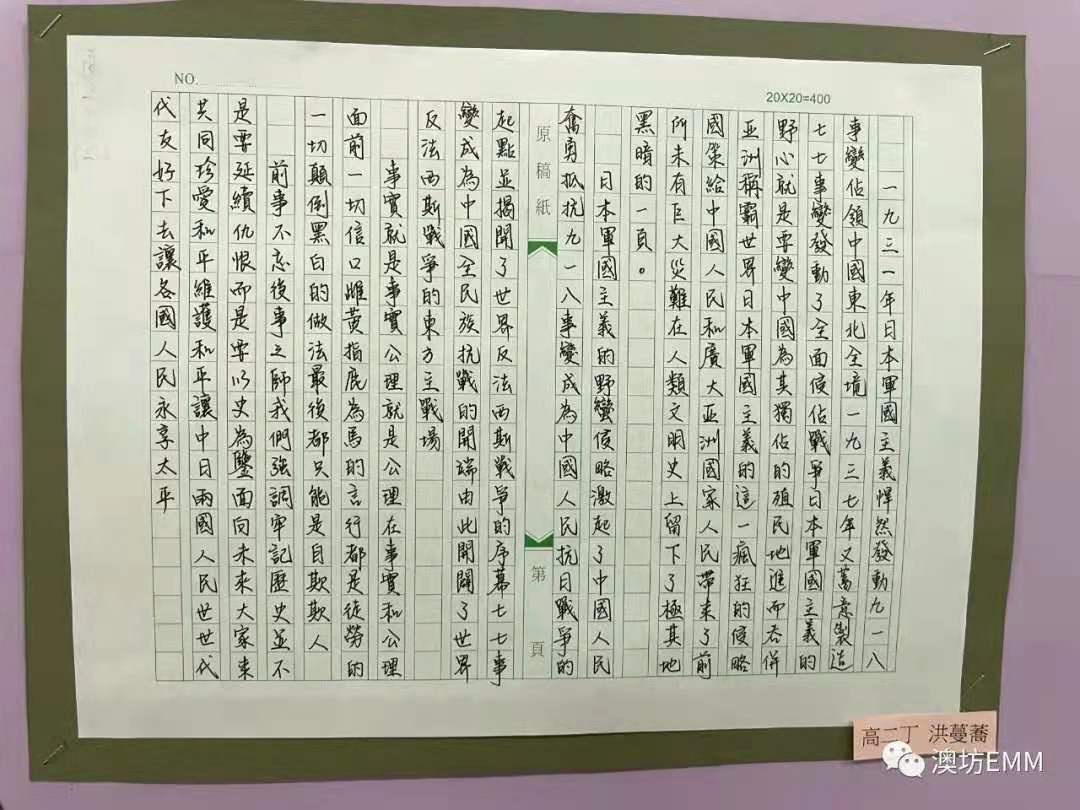 NO.
20X20=400
一九三一年日本軍國主義悍然發動九一八
事變佔領中國東北全境一九三七年又蓄意製造
七七事變發動了全面侵佔戰爭日本軍國主義的
野心就是要變中國為其獨佔的殖民地進而吞併
亞洲稱霸世界日本軍國主義的這一瘋狂的侵略
國策給中國人民和廣大亞洲國家人民帶來了前
所未有巨大災難在人類文明史上留下了極其地
黑暗的一頁。
日本軍國主義的野蠻侵略激起了中國人民
奮勇抵抗九一八事變成為中國人民抗日戰爭的
原稿紙
第 頁
起點並揭開了世界反法西斯戰爭的序幕七七事
變成為中國全民族抗戰的開端由此開闢了世界
反法西斯戰爭的東方主戰場
事實就是事實公理就是公理在事實和公理
面前一切信口雌黃指鹿為馬的言行都是徒勞的
一切顛倒黑白的做法最後都只能是自欺欺人
前事不忘後事之師我們強調牢記歷史並不
是要延續仇恨而是要以史為鑒面向未來大家來
共同珍愛和平維護和平讓中日兩國人民世世代
代友好下去讓各國人民永享太平
高二丁 洪蔓蕎
澳坊EMM